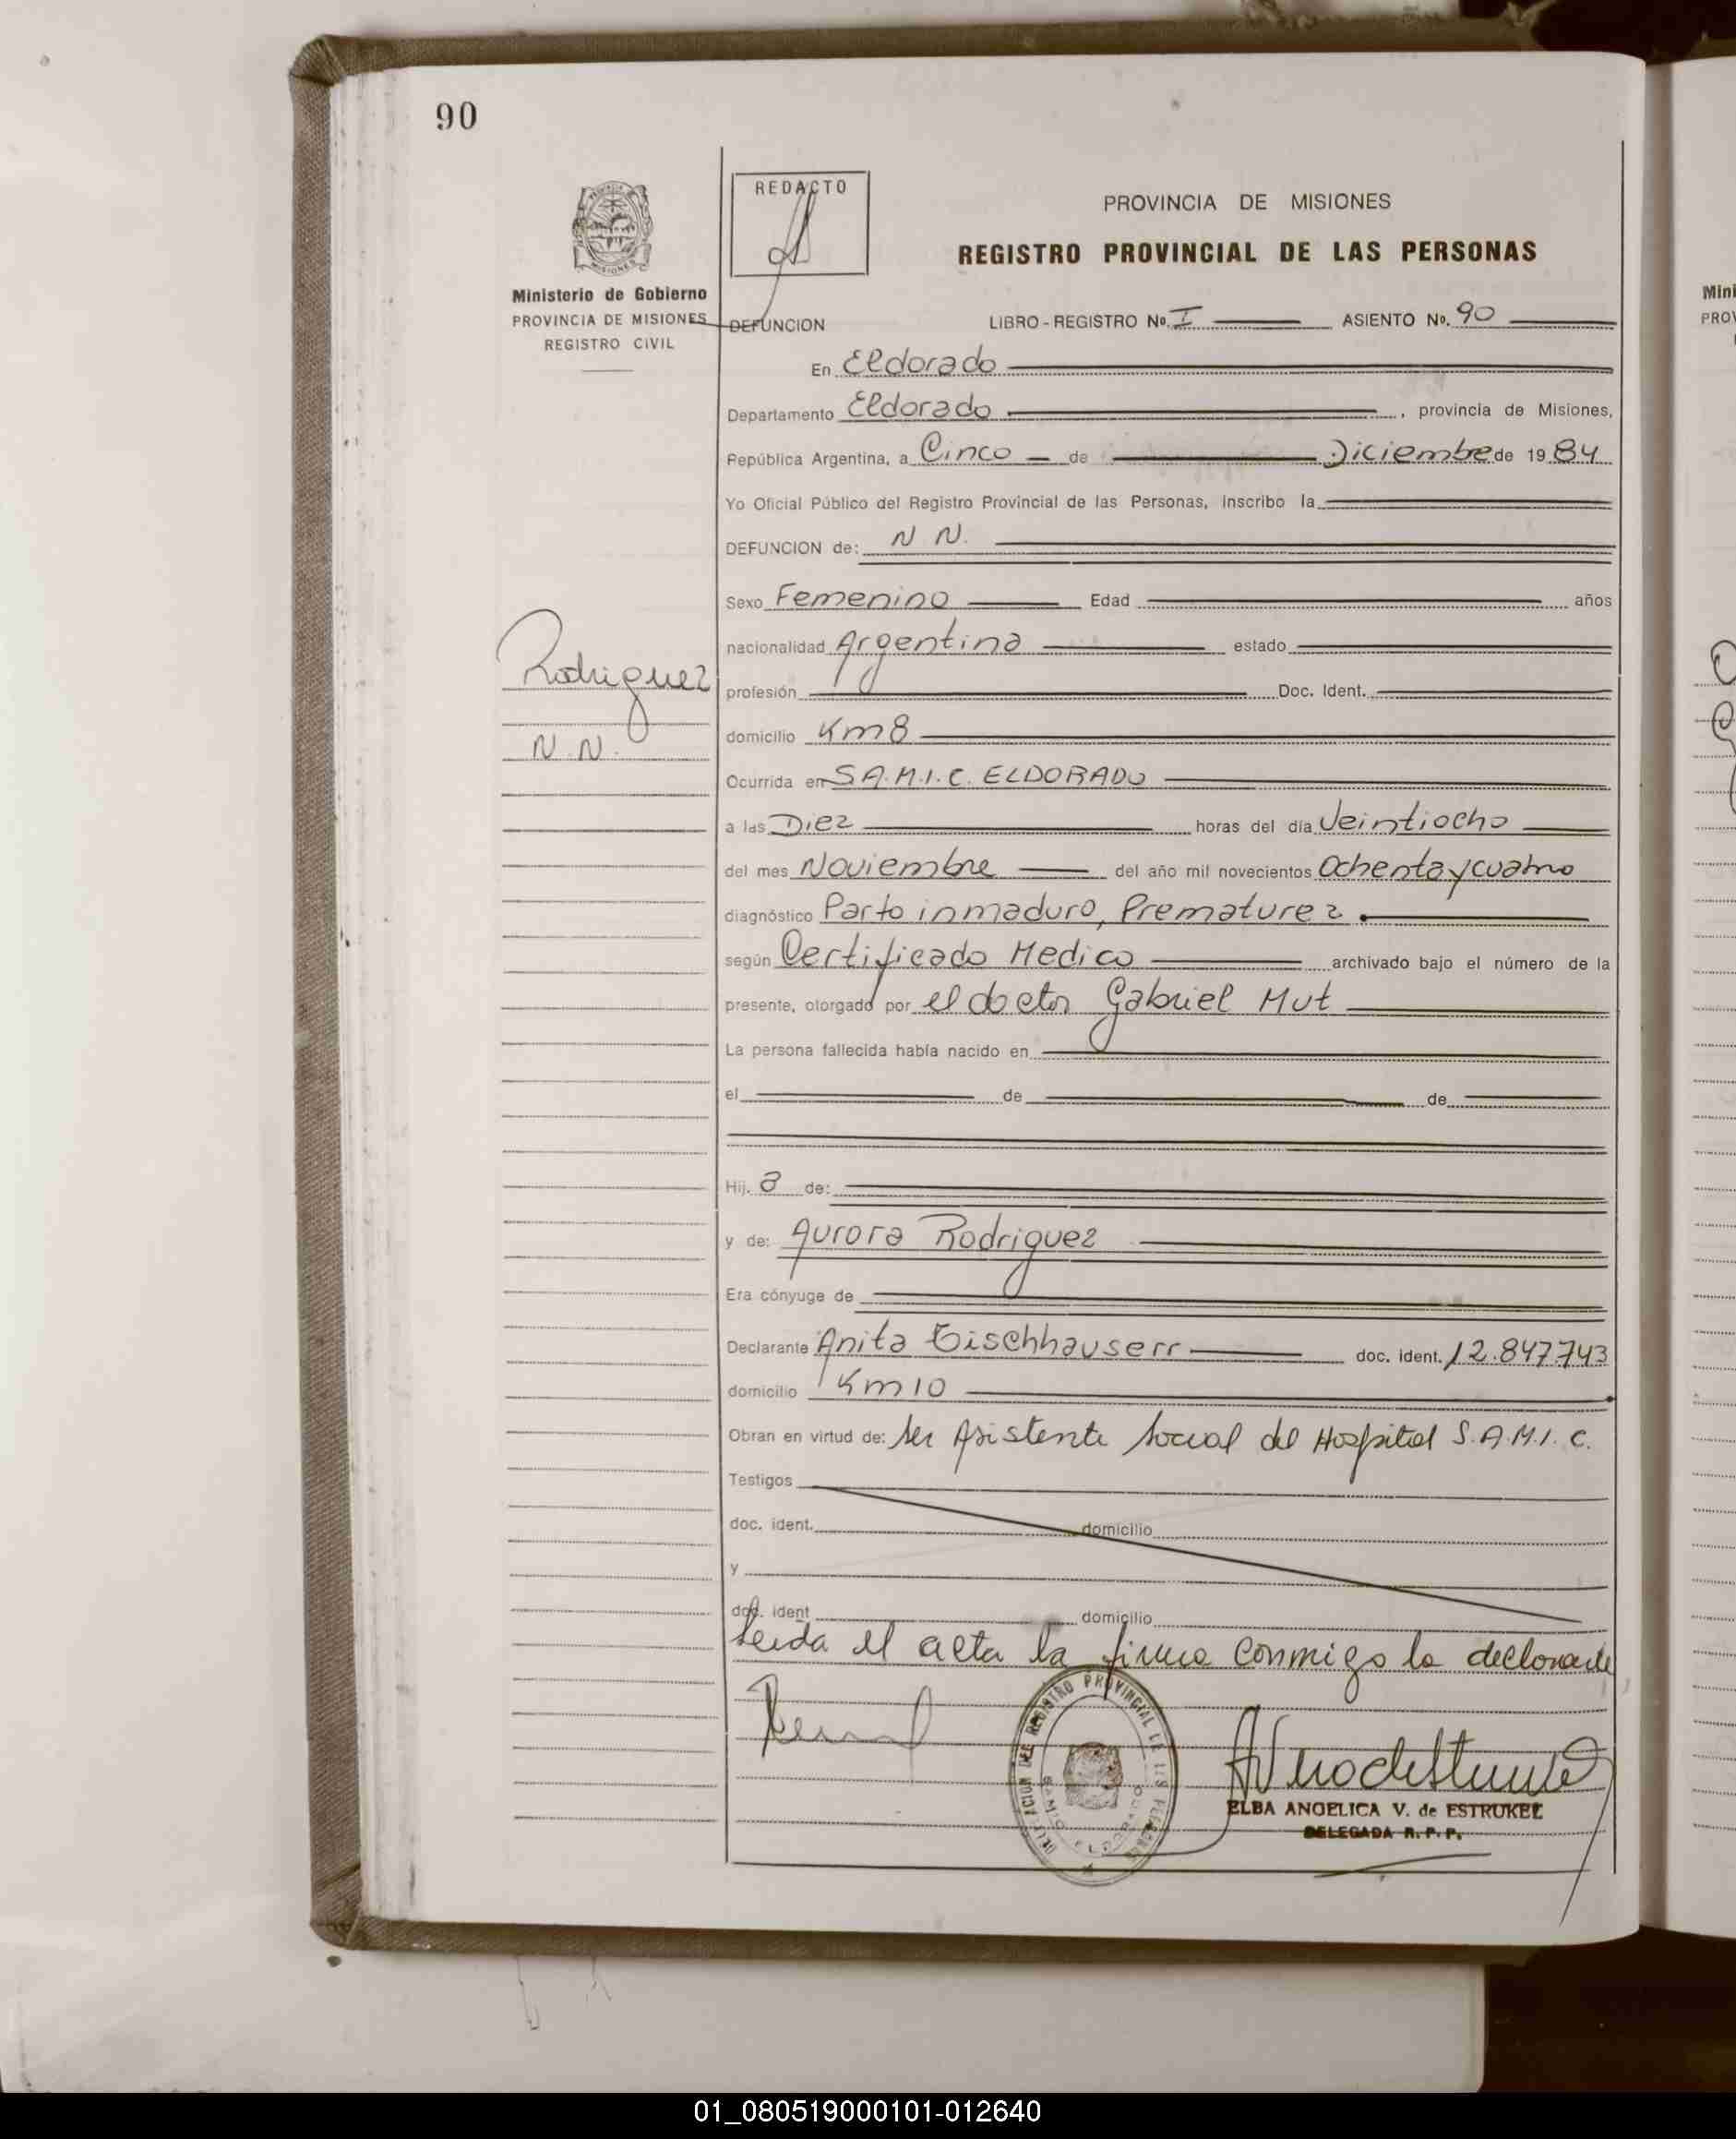 90
REDACTO
PROVINCIA DE MISIONES
REGISTRO PROVINCIAL DE LAS PERSONAS
Ministerio de Gobierno
PROVINCIA DE MISIONES
REGISTRO CIVIL
DEFUNCION LIBRO-REGISTRO No. I ASIENTO No. 90
En Eldorado
Departamento Eldorado, provincia de Misiones,
República Argentina, a Cinco de Diciembre de 1984
Yo Oficial Público del Registro Provincial de las Personas, inscribo la
DEFUNCION de: N N.
Sexo Femenino Edad años
nacionalidad Argentina estado
Rodriguez
N. N.
profesión Doc. Ident.
domicilio Km 8
Ocurrida en S A. M. I. C. ELDORADO
a las Diez horas del día Veintiocho
del mes Noviembre del año mil novecientos Ochenta y cuatro
diagnóstico Parto inmaduro, Prematurez.
según Certificado Medico archivado bajo el número de la
presente, otorgado por el doctor Gabriel Mut
La persona fallecida había nacido en
el de de
Hij. a de:
y de: Aurora Rodriguez
Era cónyuge de
Declarante Anita Eischhauserr doc. ident. 12.847.743
domicilio Km 10
Obran en virtud de: ser Asistente Social del Hospital S. A. M. I. C.
Testigos
doc. ident. domicilio
y
doc. ident domicilio
Leida el acta la firma conmigo la declarante
REGISTRO PROVINCIAL DE LAS PERSONAS
ELDORADO
ELBA ANGELICA V. de ESTRUKEL
DELEGADA R. P. P.
01_080519000101-012640